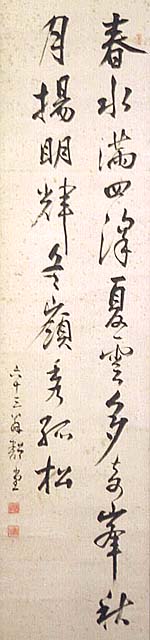 春水満四澤夏雲多奇峯秋
月揚明輝冬嶺秀孤松
六十三翁